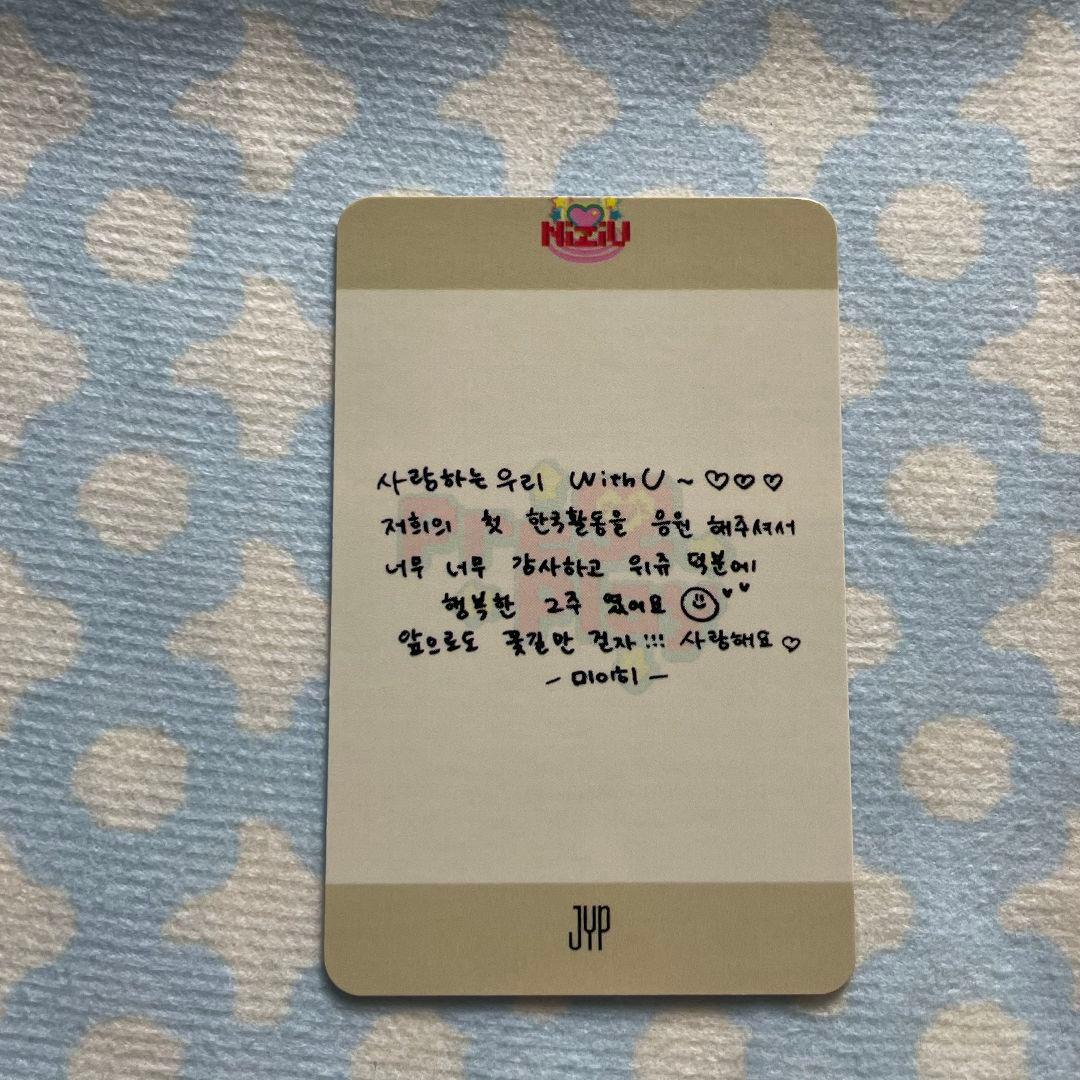 NiziU
사랑하는 우리 WithU ~ ♡♡♡
저희의 첫 한국활동을 응원 해주셔서
너무 너무 감사하고 위쥬 덕분에
행복한 2주 였어요 ☺
앞으로도 꽃길만 걷자!!! 사랑해요♡
- 미이히 -
Press Play
JYP